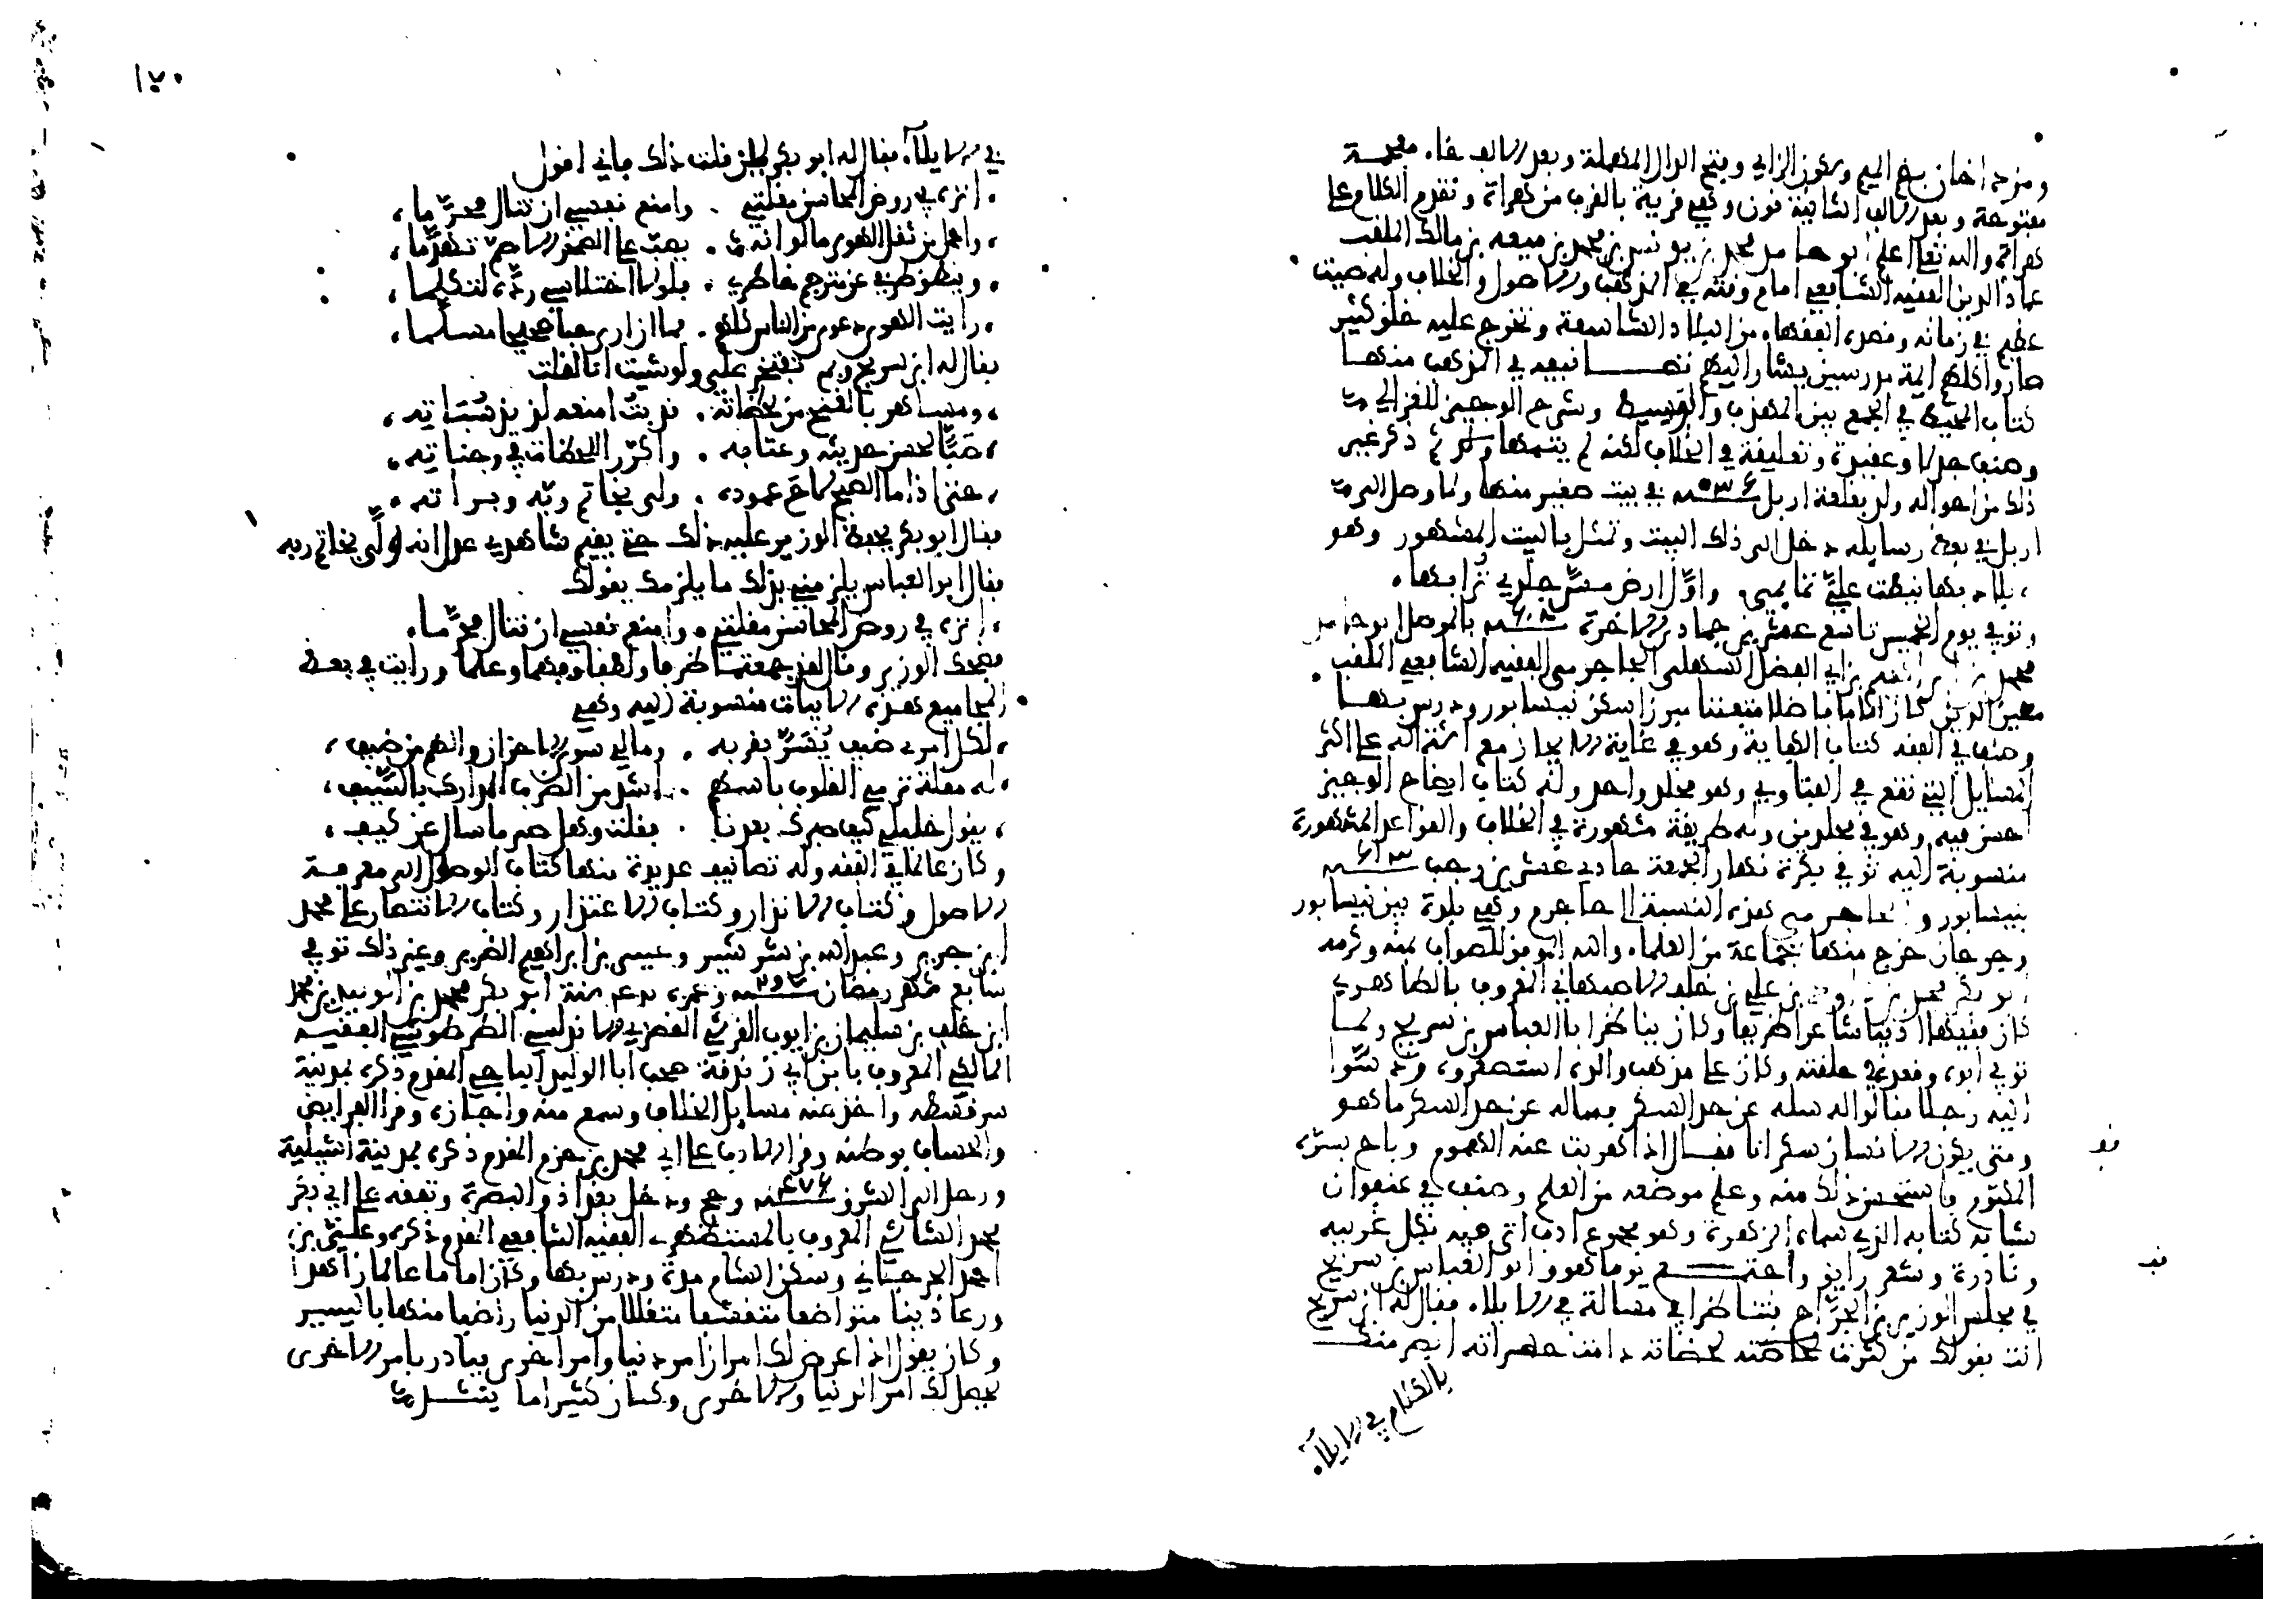 ومزداخان بفتح الميم وسكون الزاي وبفتح الدال المهملة وبعد الالف خاء معجمـة
مفتوحة وبعد الالف الثانية نون وهي قرية بالقرب من هراة وتقدم الكلام على
هراة والله تعالى اعلم ابو حامد محمد بن يونس بن محمد بن منعة بن مالك الملقب
عماد الدين الفقيه الشافعي امام وقته في المذهب والاصول والخلاف وله صيت
عظيم في زمانه وقصده الفقهاء من البلاد الشاسعة وتخرج عليه خلق كثير
صاروا كلهم ايمة مدرسين يشار اليهم تصانيفه في المذهب منهـا
كتاب المحيط في الجمع بين المهذب والوسيط وشرح الوجيز للغزالي
وصنف جدلا وعقيدة وتعليقة في الخلاف لكنه لم يتمها ثم ذكر غير
ذلك من احواله ولد بقلعة اربل سنة ٥٣٥ في بيت صغير منها ولما وصل الى
اربل في بعض رسايله دخل الى ذلك البيت وتمثل بالبيت المشهور وهو
، بلاد بها نيطت عليّ تمايمي. واوّل ارض مسّ جلدي تُرابها،
وتوفي يوم الخميس تاسع عشرين جمادى الاخرة سنة ٦٠٨ بالموصل ابو حامد
محمد بن ابراهيم بن ابي الفضل السهلي الجاجرمي الفقيه الشافعي الملقب
معين الدين كان اماما فاضلا متفننا مبرزا سكن نيسابور ودرس بهـا
وصنف في الفقه كتاب الكفاية وهو في غاية الايجاز مع اشتماله على اكثر
المسايل التي تقع في الفتاوي وهو مجلد واحد وله كتاب ايضاح الوجيز
احسن فيه وهو في مجلدين وله طريقة مشهورة في الخلاف والقواعد المشهورة
منسوبة اليه توفي بكرة نهار الجمعة حادي عشرين رجب سنة ٦١٣
بنيسابور والجاجرمي هذه النسبة الى جاجرم وهي بلدة بين نيسابور
وجرجان خرج منها جماعة من العلماء والله الموفق للصواب بمنه وكرمه
ابو بكر محمد بن داود بن علي بن خلف الاصبهاني المعروف بالظاهري
كان فقيها اديبا شاعرا ظريفا وكان يناظر ابا العباس بن سريج ولمـا
توفي ابوه وقعد في حلقته وكان على مذهب والده استصغروه فدسّوا
اليه رجلا فقالوا له سله عن حد السكر فساله عن حد السكر ما هو
ومتى يكون الانسان سكرانا فقـال اذا عزبت عنه الهموم وباح بسرّه
المكتوم فاستحسن ذلك منه وعلم موضعه من العلم وصنف في عنفوان
شبابه كتابه الذي سماه الزهرة وهو مجموع ادب اتى فيه بكل غريبه
ونادرة وشعر رايق واجتمـع يوما هو وابو العباس بن سريج
في مجلس الوزير بن الجرّاح فتناظرا في مسالة في الايلاء فقال له ابن سريج
انت بقولك من كثرت لحظاته دامت حسراته ابصر منك
بالكلام في الايلاء.
١٧٠
في الايلاء. فقال له ابو بكر لين قلت ذلك فاني اقول
، انزه في روض المحاسن مقلتي . وامنع نفسي ان تنال محرّما،
، واحمل من ثقل الهوى ما لو انه . يصبّ على الصخر الاصمّ تهدّما،
، وينطق طرفي عن مترجم خاطري . فلولا اختلاسي ردّه لتكلما،
، رايت الهوى دعوى من الناس كلهم . فما ان ارى حبا صحيحا مسلّما،
فقال له ابن سريج وبم تفتخر علي ولو شيت انا لقلت
، ومساهر بالغنج من لحظاته . قد بتّ امنعه لذيذ سُباته،
، صَبّا لحسن حديثه وعتابه . واكرّر اللحظات في وجناته،
، حتى اذا ما الصبح لاح عموده . ولى بخاتم ربّه وبراته،
فقال ابو بكر يحفظ الوزير عليه ذلك حتى يقيم شاهدي عدل انه ولّى بخاتم ربه
فقال ابو العباس يلزمني بذلك ما يلزمك بقولك
، انزه في روض المحاسن مقلتي . وامنع نفسي ان تنال محرّما،
فضحك الوزير وقال لقد جمعتما ظرفا ولطفا وفهما وعلما ورايت في بعض
المجاميع هذه الابيات منسوبة اليه وهي
، لكل امرء ضيف يُسَرّ بقربه . ومالي سوى الاحزان والهم من ضيف،
، له مقلة ترمي القلوب باسهم . اشد من الضرب المدارك بالسّيف،
، يقول خليلي كيف صبرك بعدنا . فقلت وهل صبر فاسال عن كيف،
وكان عالما في الفقه وله تصانيف عديدة منها كتاب الوصول الى معرفـة
الاصول وكتاب الانذار وكتاب الاعتذار وكتاب الانتصار على محمد
ابن جرير وعبد الله بن شرشير وعيسى بن ابراهيم الضرير وغير ذلك توفي
تاسع شهر رمضان سنة ٢٩٧ وعمره سنة ابو بكر محمد بن الوليد بن محمد
ابن خلف بن سليمان بن ايوب القرشي الفهري الاندلسي الطرطوشي الفقيـه
المالكي المعروف بابن ابي رندقة صحب ابا الوليد الباجي المقدم ذكره بمدينة
سرقسطه واخذ عنه مسايل الخلاف وسمع منه واجازه وقرا الفرايض
والحساب بوطنه وقرا الادب على ابي محمد بن حزم المقدم ذكره بمدينة اشبيلية
ورحل الى المشرق سنة ٤٧٦ وحج ودخل بغداد والبصرة وتفقه على ابي بكر
محمد الشاشي المعروف بالمستظهري الفقيه الشافعي المقدم ذكره وعلى بن
احمد الجرجاني وسكن الشام مدة ودرس بها وكان اماما عالما زاهدا
ورعا دينا متواضعا متقشفا متقللا من الدنيا راضيا منها باليسير
وكان يقول اذا عرض لك امران امر دنيا وامر اخرى فبادر بامر الاخرى
يحصل لك امر الدنيا والاخرى وكان كثيرا ما ينشد